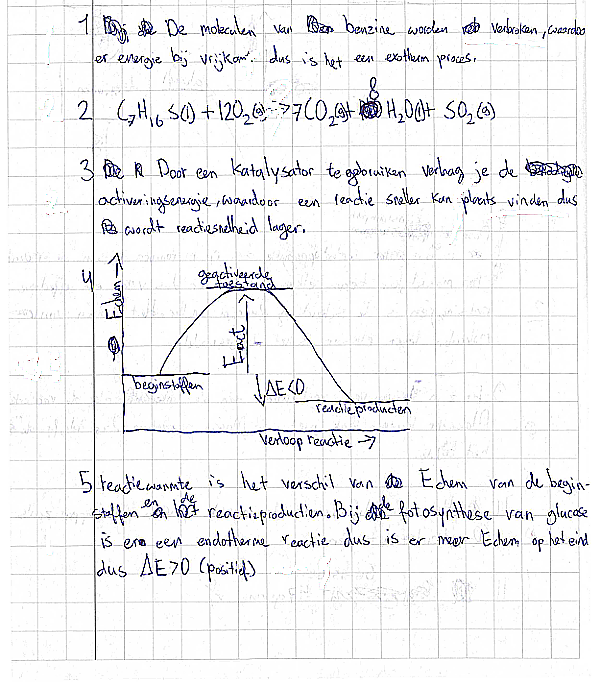 1 De moleculen van benzine worden verbroken, waardoor
er energie bij vrijkomt. dus is het een exotherm proces.
2 C₇H₁₆S(l) + 12O₂(g) -> 7CO₂(g) + 8 H₂O(l) + SO₂(g)
3 Door een katalysator te gebruiken verlaag je de
activeringsenergie, waardoor een reactie sneller kan plaats vinden dus
wordt reactiesnelheid lager.
4
geactiveerde
toestand
Echem ->
Eact
beginstoffen
ΔE<0
reactieproducten
Verloop reactie ->
5 reactiewarmte is het verschil van Echem van de begin-
stoffen en de reactieproducten. Bij de fotosynthese van glucose
is er een endotherme reactie dus is er meer Echem op het eind
dus ΔE>0 (positief)